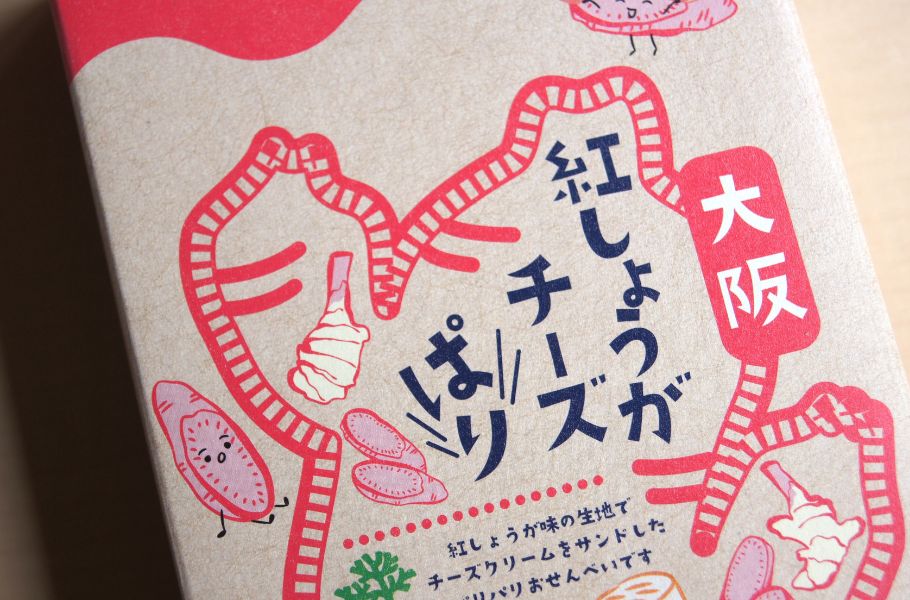 大阪
紅しょうが
チーズ
ぱり
紅しょうが味の生地で
チーズクリームをサンドした
パリパリおせんべいです